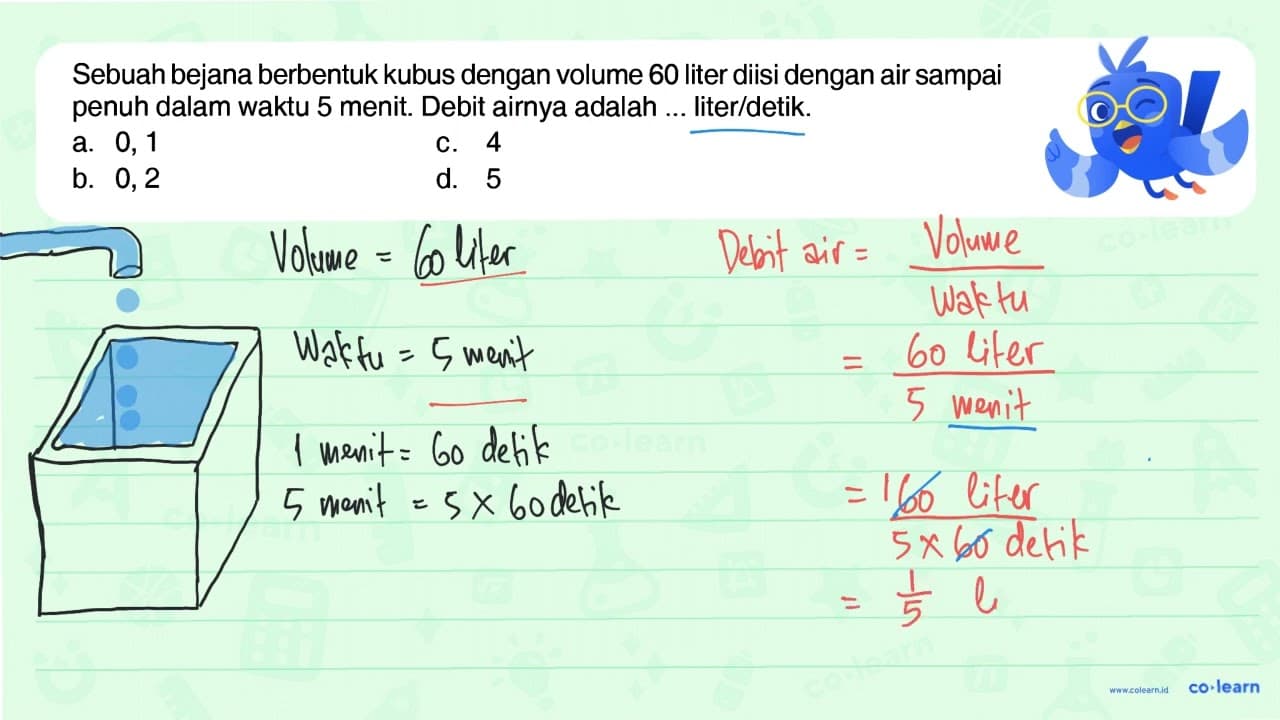 Sebuah bejana berbentuk kubus dengan volume 60 liter diisi dengan air sampai
penuh dalam waktu 5 menit. Debit airnya adalah ... liter/detik.
a. 0, 1
c. 4
b. 0, 2
d. 5
Volume = 60 liter
Waktu = 5 menit
1 menit = 60 detik
5 menit = 5 × 60 detik
Debit air = Volume
Waktu
= 60 liter
5 menit
= 1 60 liter
5 × 60 detik
= 1/5 l
co-learn
co-learn
co-learn
co-learn
www.colearn.id co·learn